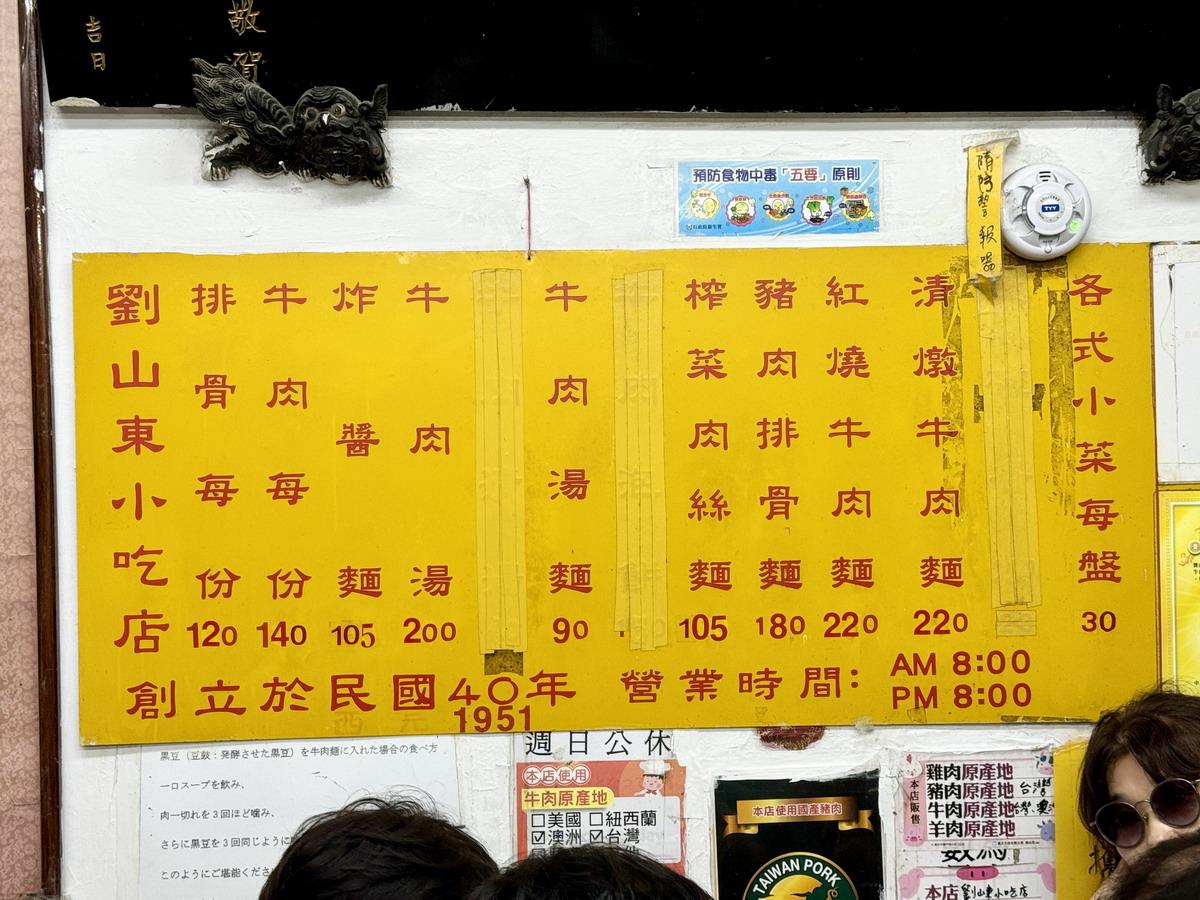 敬賀
吉日
預防食物中毒「五要」原則
行政院衛生署
隋時警報器
各式小菜每盤 30
清燉牛肉麵 220
紅燒牛肉麵 220
豬肉排骨麵 180
榨菜肉絲麵 105
牛肉湯麵 90
牛肉湯 200
炸醬麵 105
牛肉每份 140
排骨每份 120
劉山東小吃店
創立於民國40年
1951
營業時間:
AM 8:00
PM 8:00
週日公休
黒豆（豆鼓：発酵させた黒豆）を牛肉麺に入れた場合の食べ方
一口スープを飲み、
肉一切れを3回ほど噛み、
さらに黒豆を3回同じように
このようにご堪能くださ
本店使用
牛肉原產地
□美國 □紐西蘭
☑澳洲 ☑台灣
本店使用國產豬肉
TAIWAN PORK
本店販售
雞肉原產地
豬肉原產地 台灣
牛肉原產地 台灣、澳洲
羊肉原產地
本店 劉山東小吃店